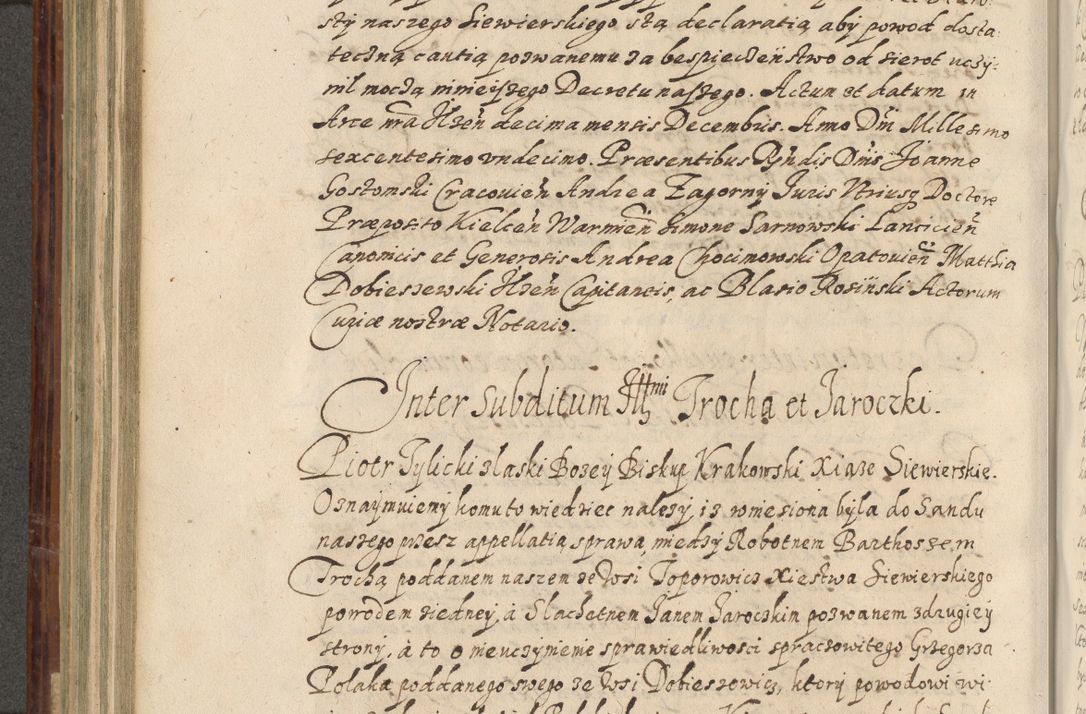 sty naszego Siewierskiego stą declaratią aby powod dosta
teczną cautią pozwanemu za bespieczeństwo od sierot uczy-
nil moczą ninieyszego Decretu naszego. Actum et datum in
Arce nra Ilzeń decima mensis Decembris. Anno Dni Millesimo
sexcentesimo undecimo. Præsentibus Rndis Dnis Joanne
Gostomski Cracovień Andrea Zagorny Juris Utriusq Doctore
Præposito Kielceń Warmień Simone Sarnowski Lancicień
Canonicis et Generosis Andrea Chocimowski Opatovień Matthia
Dobieszewski Ilzeń Capitaneis, ac Blasio Rosiński Actorum
Curiæ nostræ Notario.
Inter subditum Illmi Trocha et Jaroczki.
Piotr Tylicki z laski Bozey Biskup Krakowski Xiąze Siewierskie.
Oznaymuiemy komu to wiedziec nalezy, iz wniesiona była do Sandu
naszego przez appellatią sprawa między Robotnem Barthoszem
Trochą poddanem naszem ze Wsi Toporowicz Xiestwa Siewierskiego
powodem ziedney, à Slachetnem Janem Jaroczkim pozwanem zdrugiey
strony, à to o nieuczynienie sprawiedliwosci spraczowitego Grzegorza
Polaka poddanego swego ze Wsi Dobieszowicz, ktory powodowi wi-